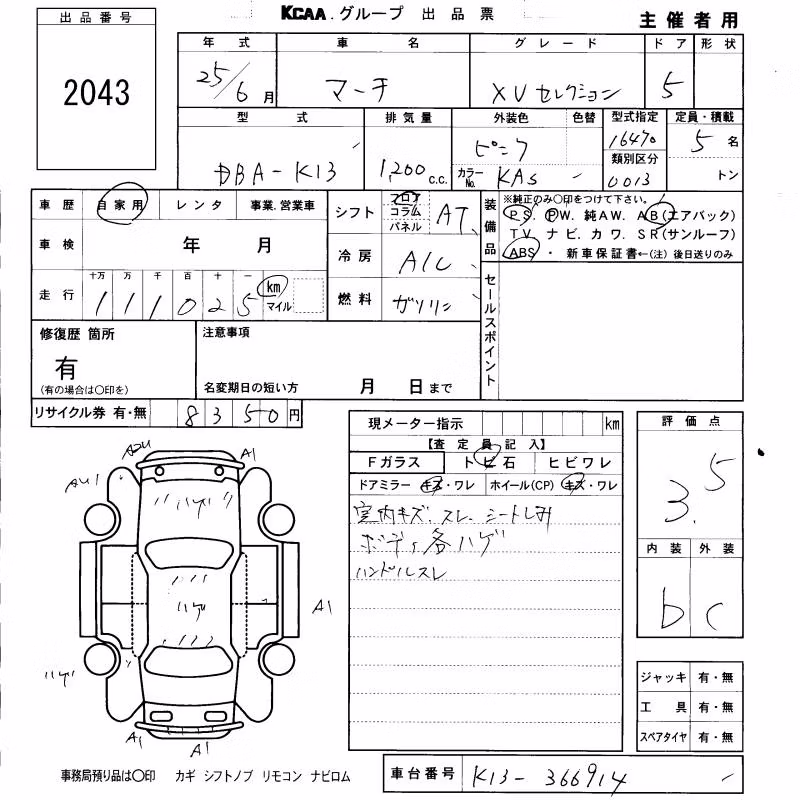 KCAA.グループ 出品票
主催者用
出品番号
2043
年式 車名 グレード ドア 形状
25/6月 マーチ XVセレクション 5
型式 排気量 外装色 色替 型式指定 定員・積載
DBA-K13 1,200 c.c. ピンク カラーNo. KAs 16470 5名
類別区分 0013 トン
車歴 自家用 レンタ 事業.営業車
車検 年 月
走行 十万 万 千 百 十 一
111025 km マイル
シフト フロア コラム パネル AT
冷房 A/C
燃料 ガソリン
装備品
※純正のみ○印をつけて下さい。
PS. PW. 純AW. AB(エアバック)
TV. ナビ. カワ. SR(サンルーフ)
ABS・新車保証書←(注)後日送りのみ
セールスポイント
修復歴 箇所
有
(有の場合は○印を)
注意事項
名変期日の短い方 月 日まで
リサイクル券 有・無 8350円
現メーター指示 km
【査定員記入】
Fガラス トビ石 ヒビワレ
ドアミラー キズ・ワレ ホイール(CP) キズ・ワレ
室内キズ、スレ、シートしみ
ボディ各ハゲ
ハンドルスレ
評価点
3.5
内装 外装
b c
ジャッキ 有・無
工具 有・無
スペアタイヤ 有・無
A2U A1
AU1
ハゲ
ハゲ
A1
ハゲ
A1 A1
事務局預り品は○印 カギ シフトノブ リモコン ナビロム
車台番号 K13-366914